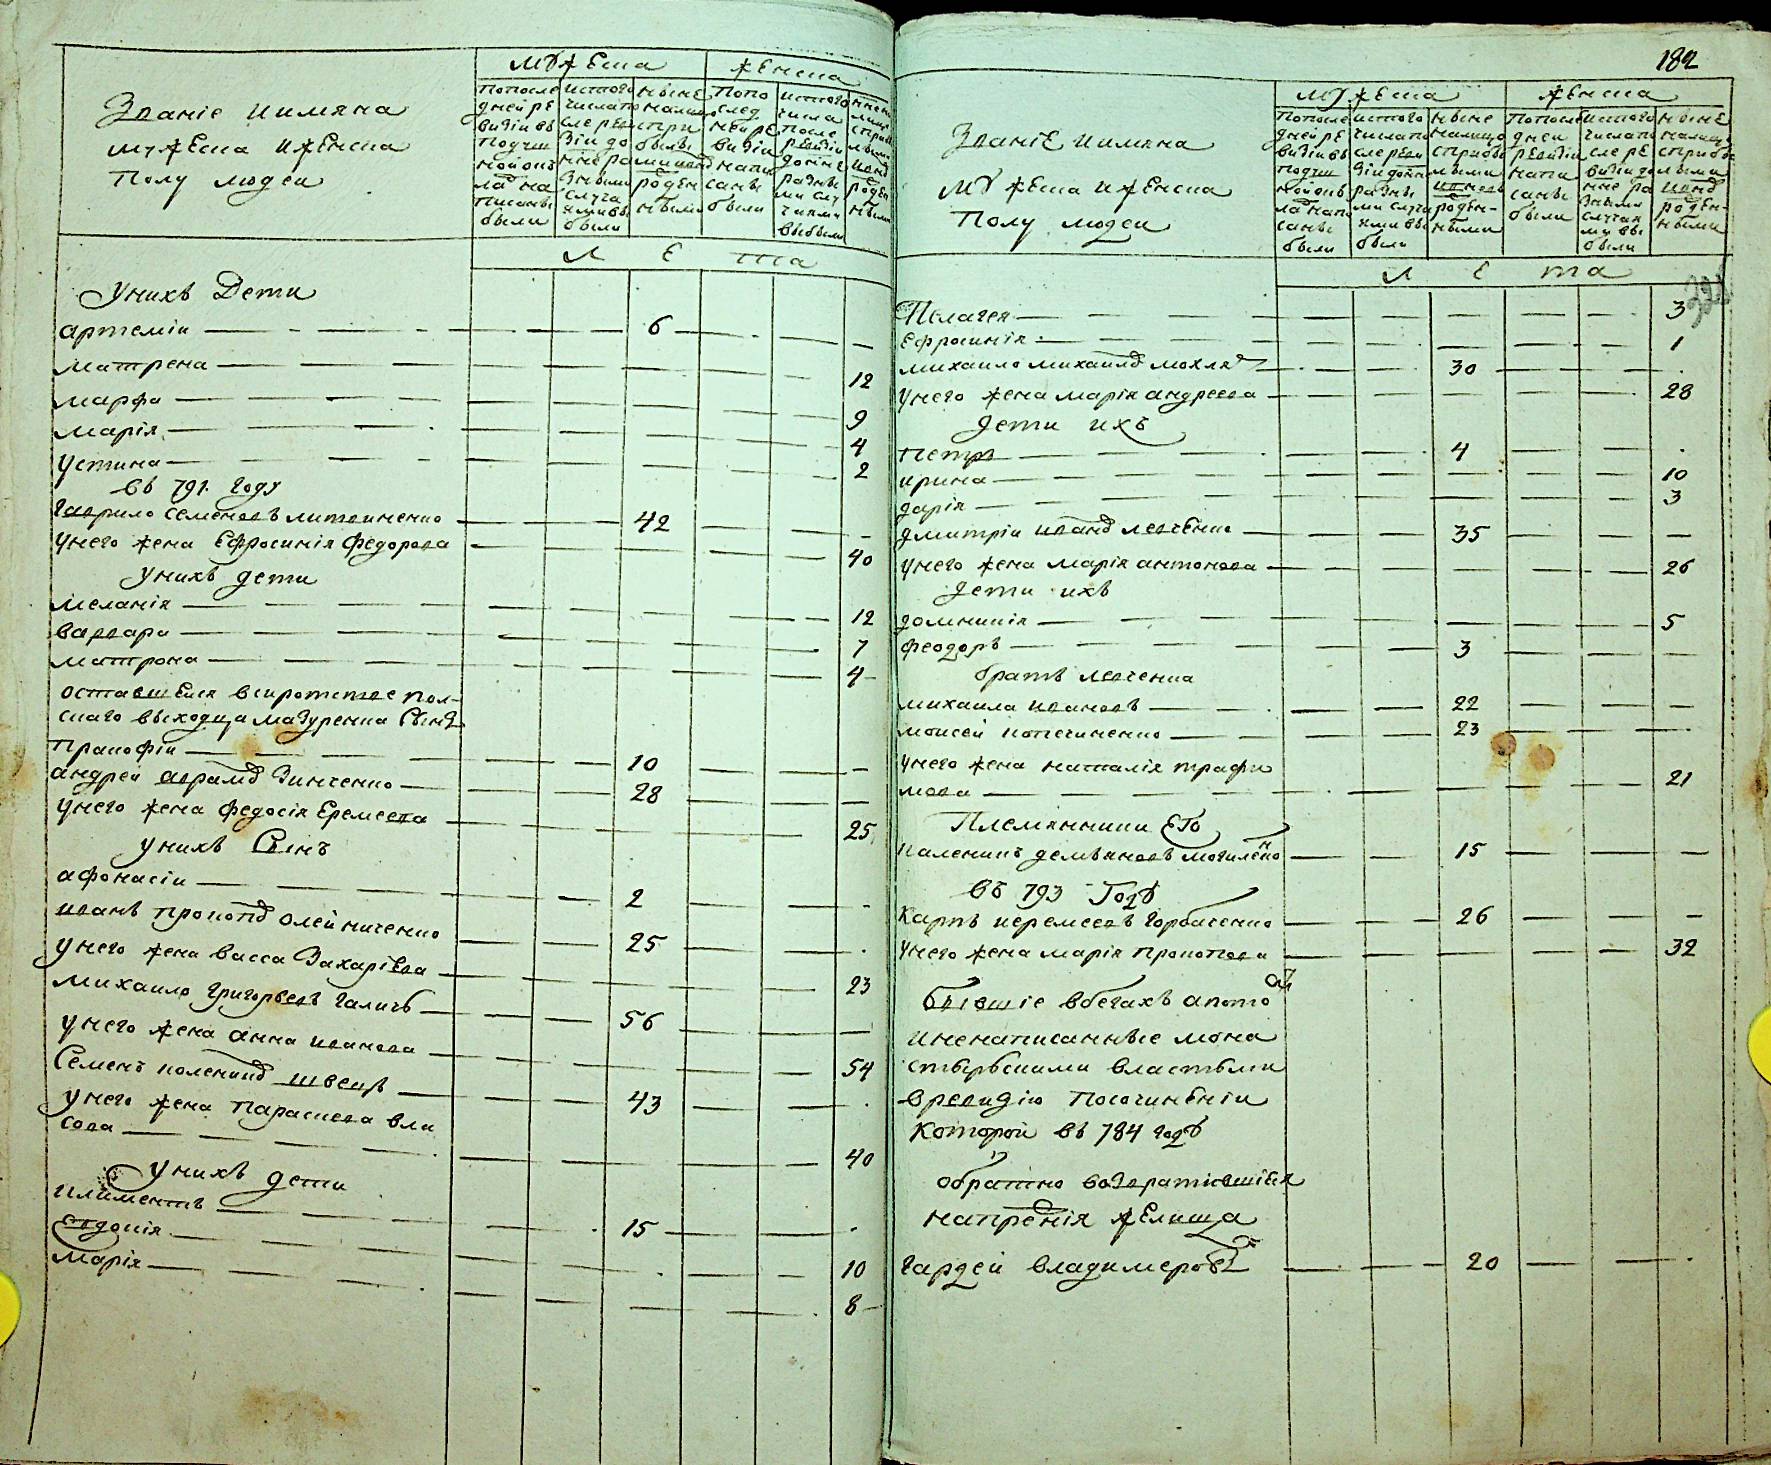 Званіе иимяна
мужеска иженска
Полу людеи
мужеска
женска
Попосле
дней ре
визіи въ
подуш
истого
числа по
ныне
Попо
след
ней ре
визіи
напи
саны
были
истого
числа
после
ревизіи
выбыли
Л е та
Унихъ Дети
артеміи 6
матрена 12
марфа 9
марія 4
устина 2
въ 791 году
Гаврило семеновъ литвиненко 42
унего жена Ефросинія Федорова 40
унихъ дети
меланія 12
варвара 7
матрона 4
оставшейся всиротстве пол-
скаго выходца мазуренка Сынъ
Пракофіи 10
андреи аврамовъ Зинченко 28
унего жена федосія Еремеева 25
унихъ Сынъ
афонасіи 2
иванъ прокоповъ олейниченко 25
унего жена васса Захаріева 23
михаило григорьевъ галичъ 56
унего жена анна иванова 54
Семенъ колениковъ швецъ 43
унего жена Параскева вла
сова 40
унихъ дети
климентъ 15
Евдокія 10
марія 8
182
Званіе иимяна
мужеска иженска
Полу людеи
мужеска
женска
Попосле
дней ре
визіи въ
подуш
ной окъ
ладнапи
саны
были
истого
числапо
сле реви
выбыли
ныне
налицо
сприбы
лыми
роден-
ными
Попосле
днеи
ревизіи
напи
саны
были
истого
числапо
сле ре
визіи до
ныне ра
зными
случая
ми вы
были
ныне
налицо
сприбы
лыми
роден-
ными
Л е та
Пелагея 3
ефросинія 1
михаило михаиловъ мохля 30
унего жена марія андреева 28
дети ихъ
Петръ 4
ирина 10
дарія 3
дмитріи ивановъ левченко 35
унего жена марія антонова 26
дети ихъ
домникія 5
феодоръ 3
братъ левченка
михаила ивановъ 22
моисеи копечиненко 23
унего жена наталія трафи
мова 21
Племянники Его
каленикъ демяновъ могиленко 15
въ 793 Году
Карпъ иеремеевъ горбаченко 26
унего жена марія прокопова 32
бывшіе вбегахъ апотому
иненаписанные мона
стырскими властьми
вревизію посочиненіи
которои въ 784 году
обратно возвратившіяся
напрежнія желища
гардеи владимеровъ 20